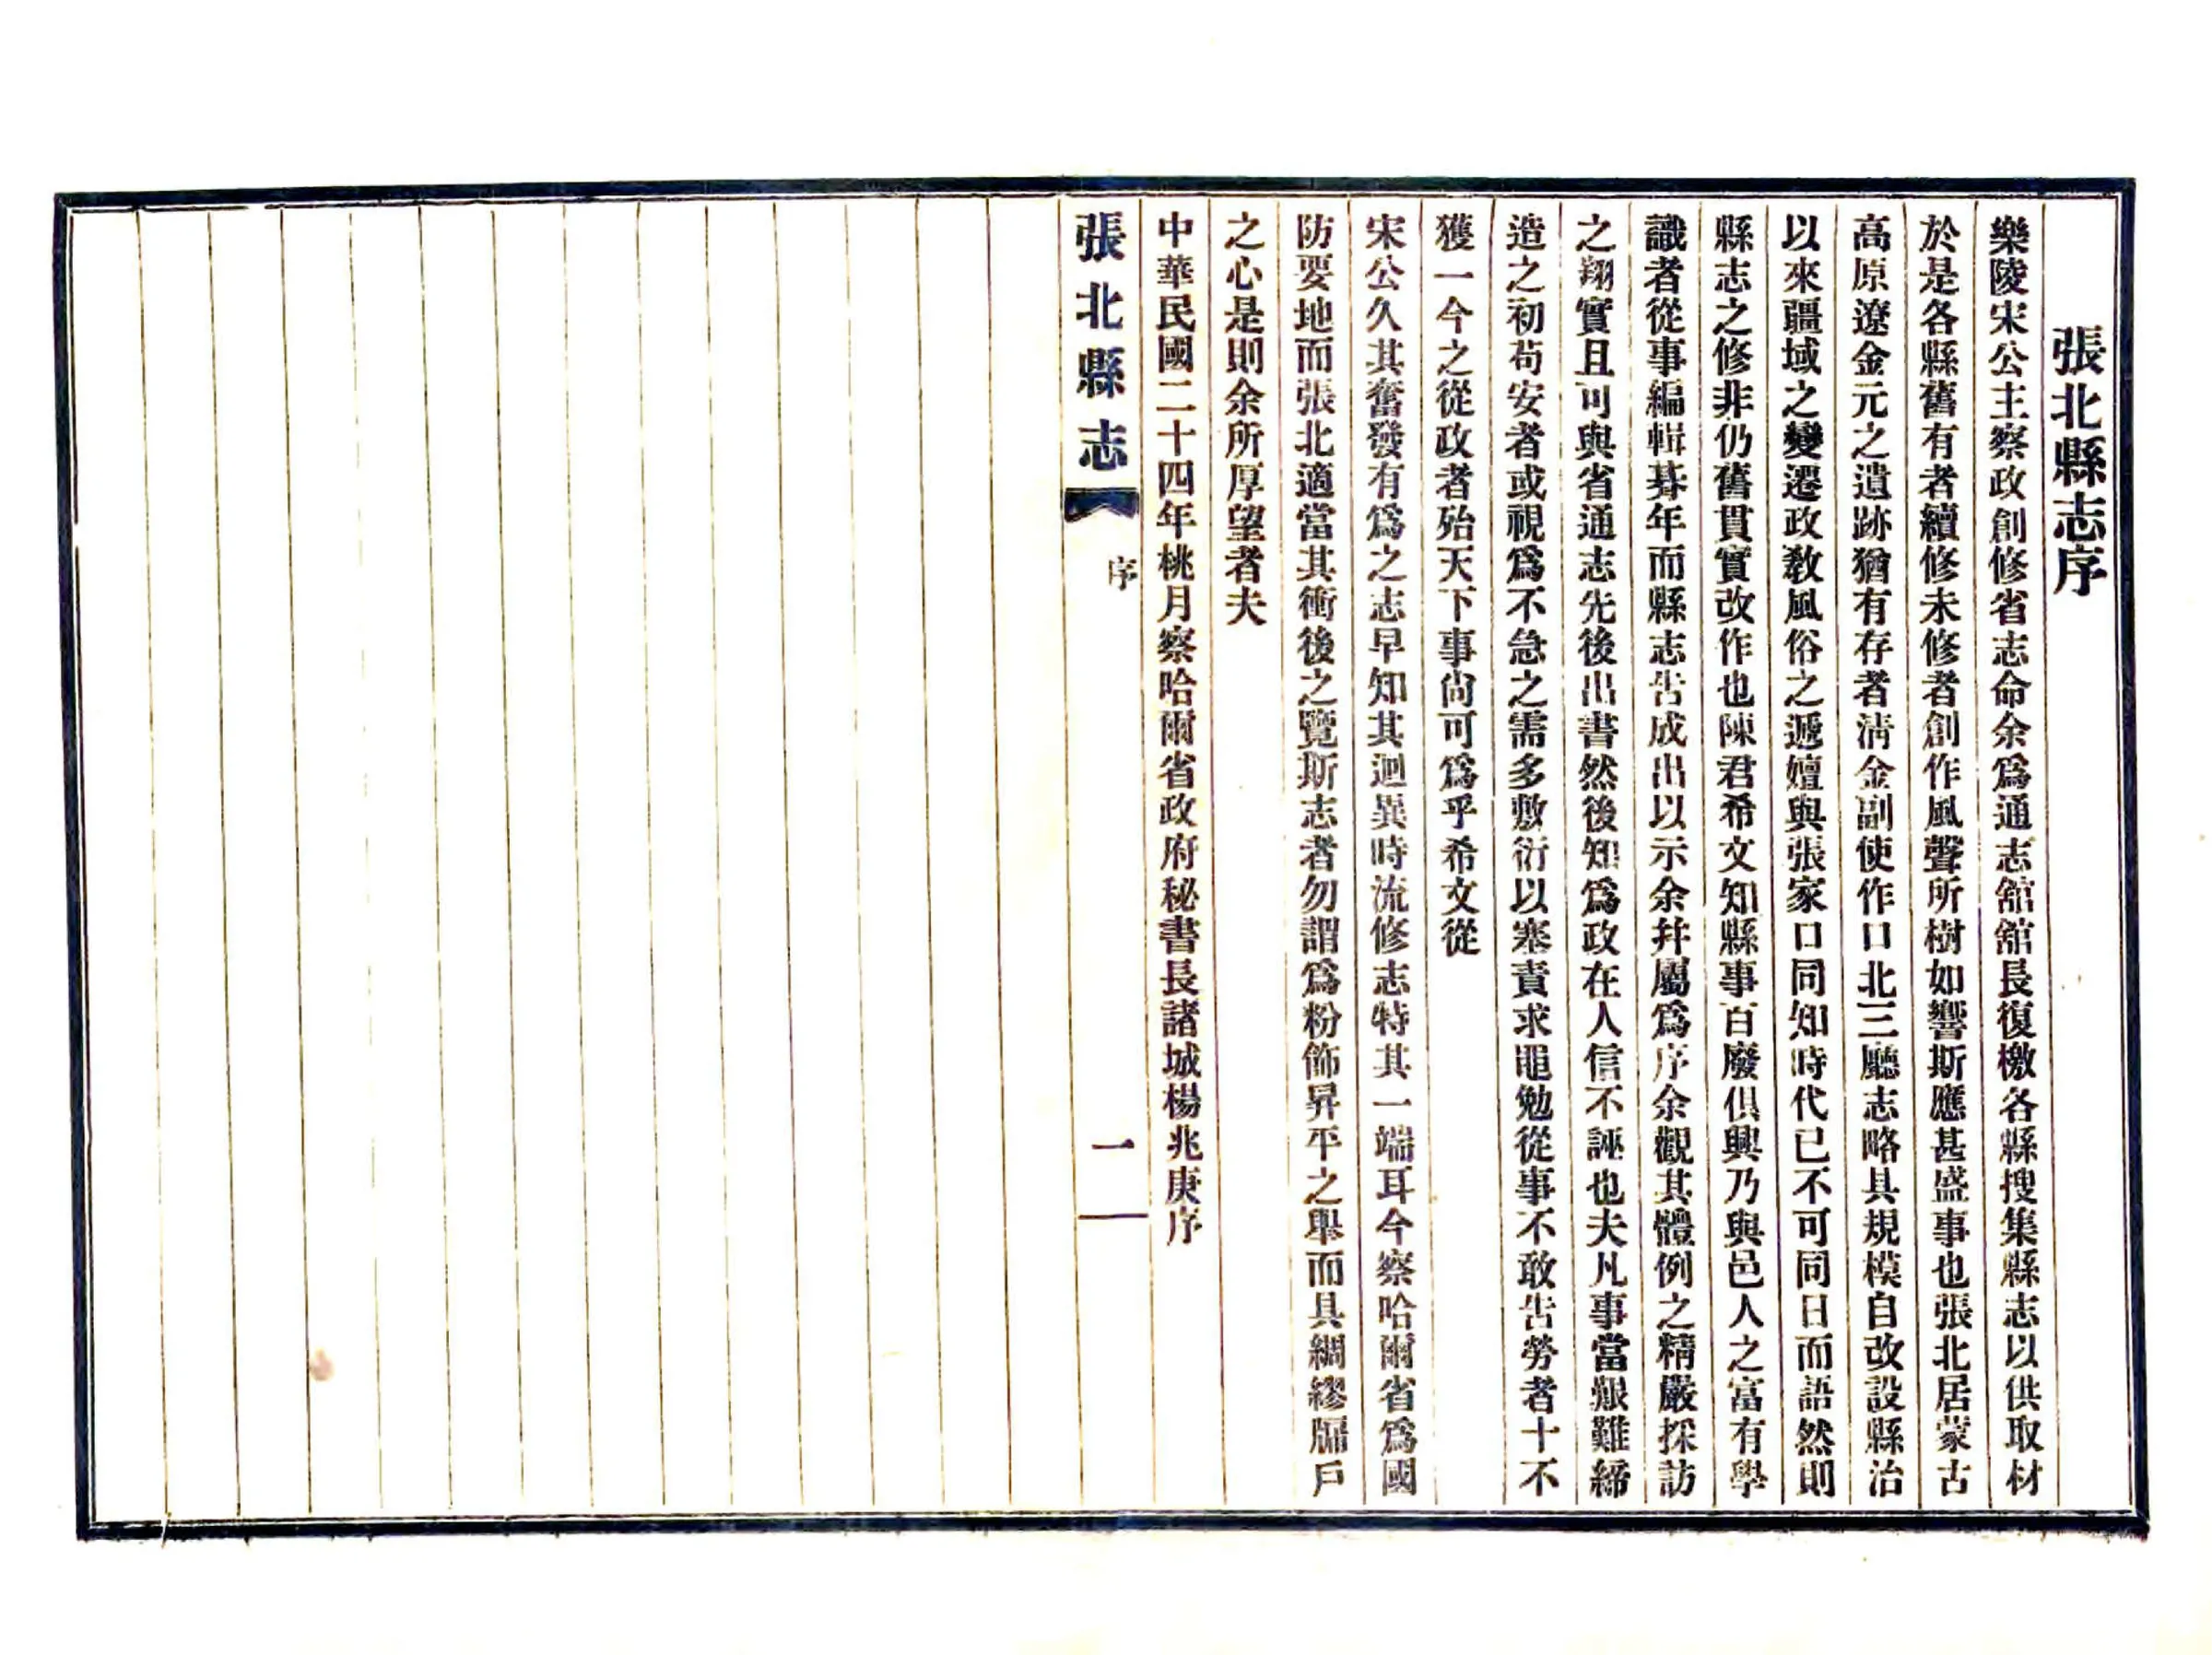 張北縣志序
樂陵宋公主察政創修省志命余爲通志舘舘長復檄各縣搜集縣志以供取材
於是各縣舊有者續修未修者創作風聲所樹如響斯應甚盛事也張北居蒙古
高原遼金元之遺跡猶有存者淸金副使作口北三廳志略具規模自改設縣治
以來疆域之變遷政敎風俗之遞嬗與張家口同知時代已不可同日而語然則
縣志之修非仍舊貫實改作也陳君希文知縣事百廢俱興乃與邑人之富有學
識者從事編輯朞年而縣志吿成出以示余幷屬爲序余觀其體例之精嚴採訪
之翔實且可與省通志先後出書然後知爲政在人信不誣也夫凡事當艱難締
造之初苟安者或視爲不急之需多敷衍以塞責求黽勉從事不敢吿勞者十不
獲一今之從政者殆天下事尙可爲乎希文從
宋公久其奮發有爲之志早知其迥異時流修志特其一端耳今察哈爾省爲國
防要地而張北適當其衝後之覽斯志者勿謂爲粉飾昇平之舉而具綢繆牖戶
之心是則余所厚望者夫
中華民國二十四年桃月察哈爾省政府秘書長諸城楊兆庚序
張北縣志
序
一